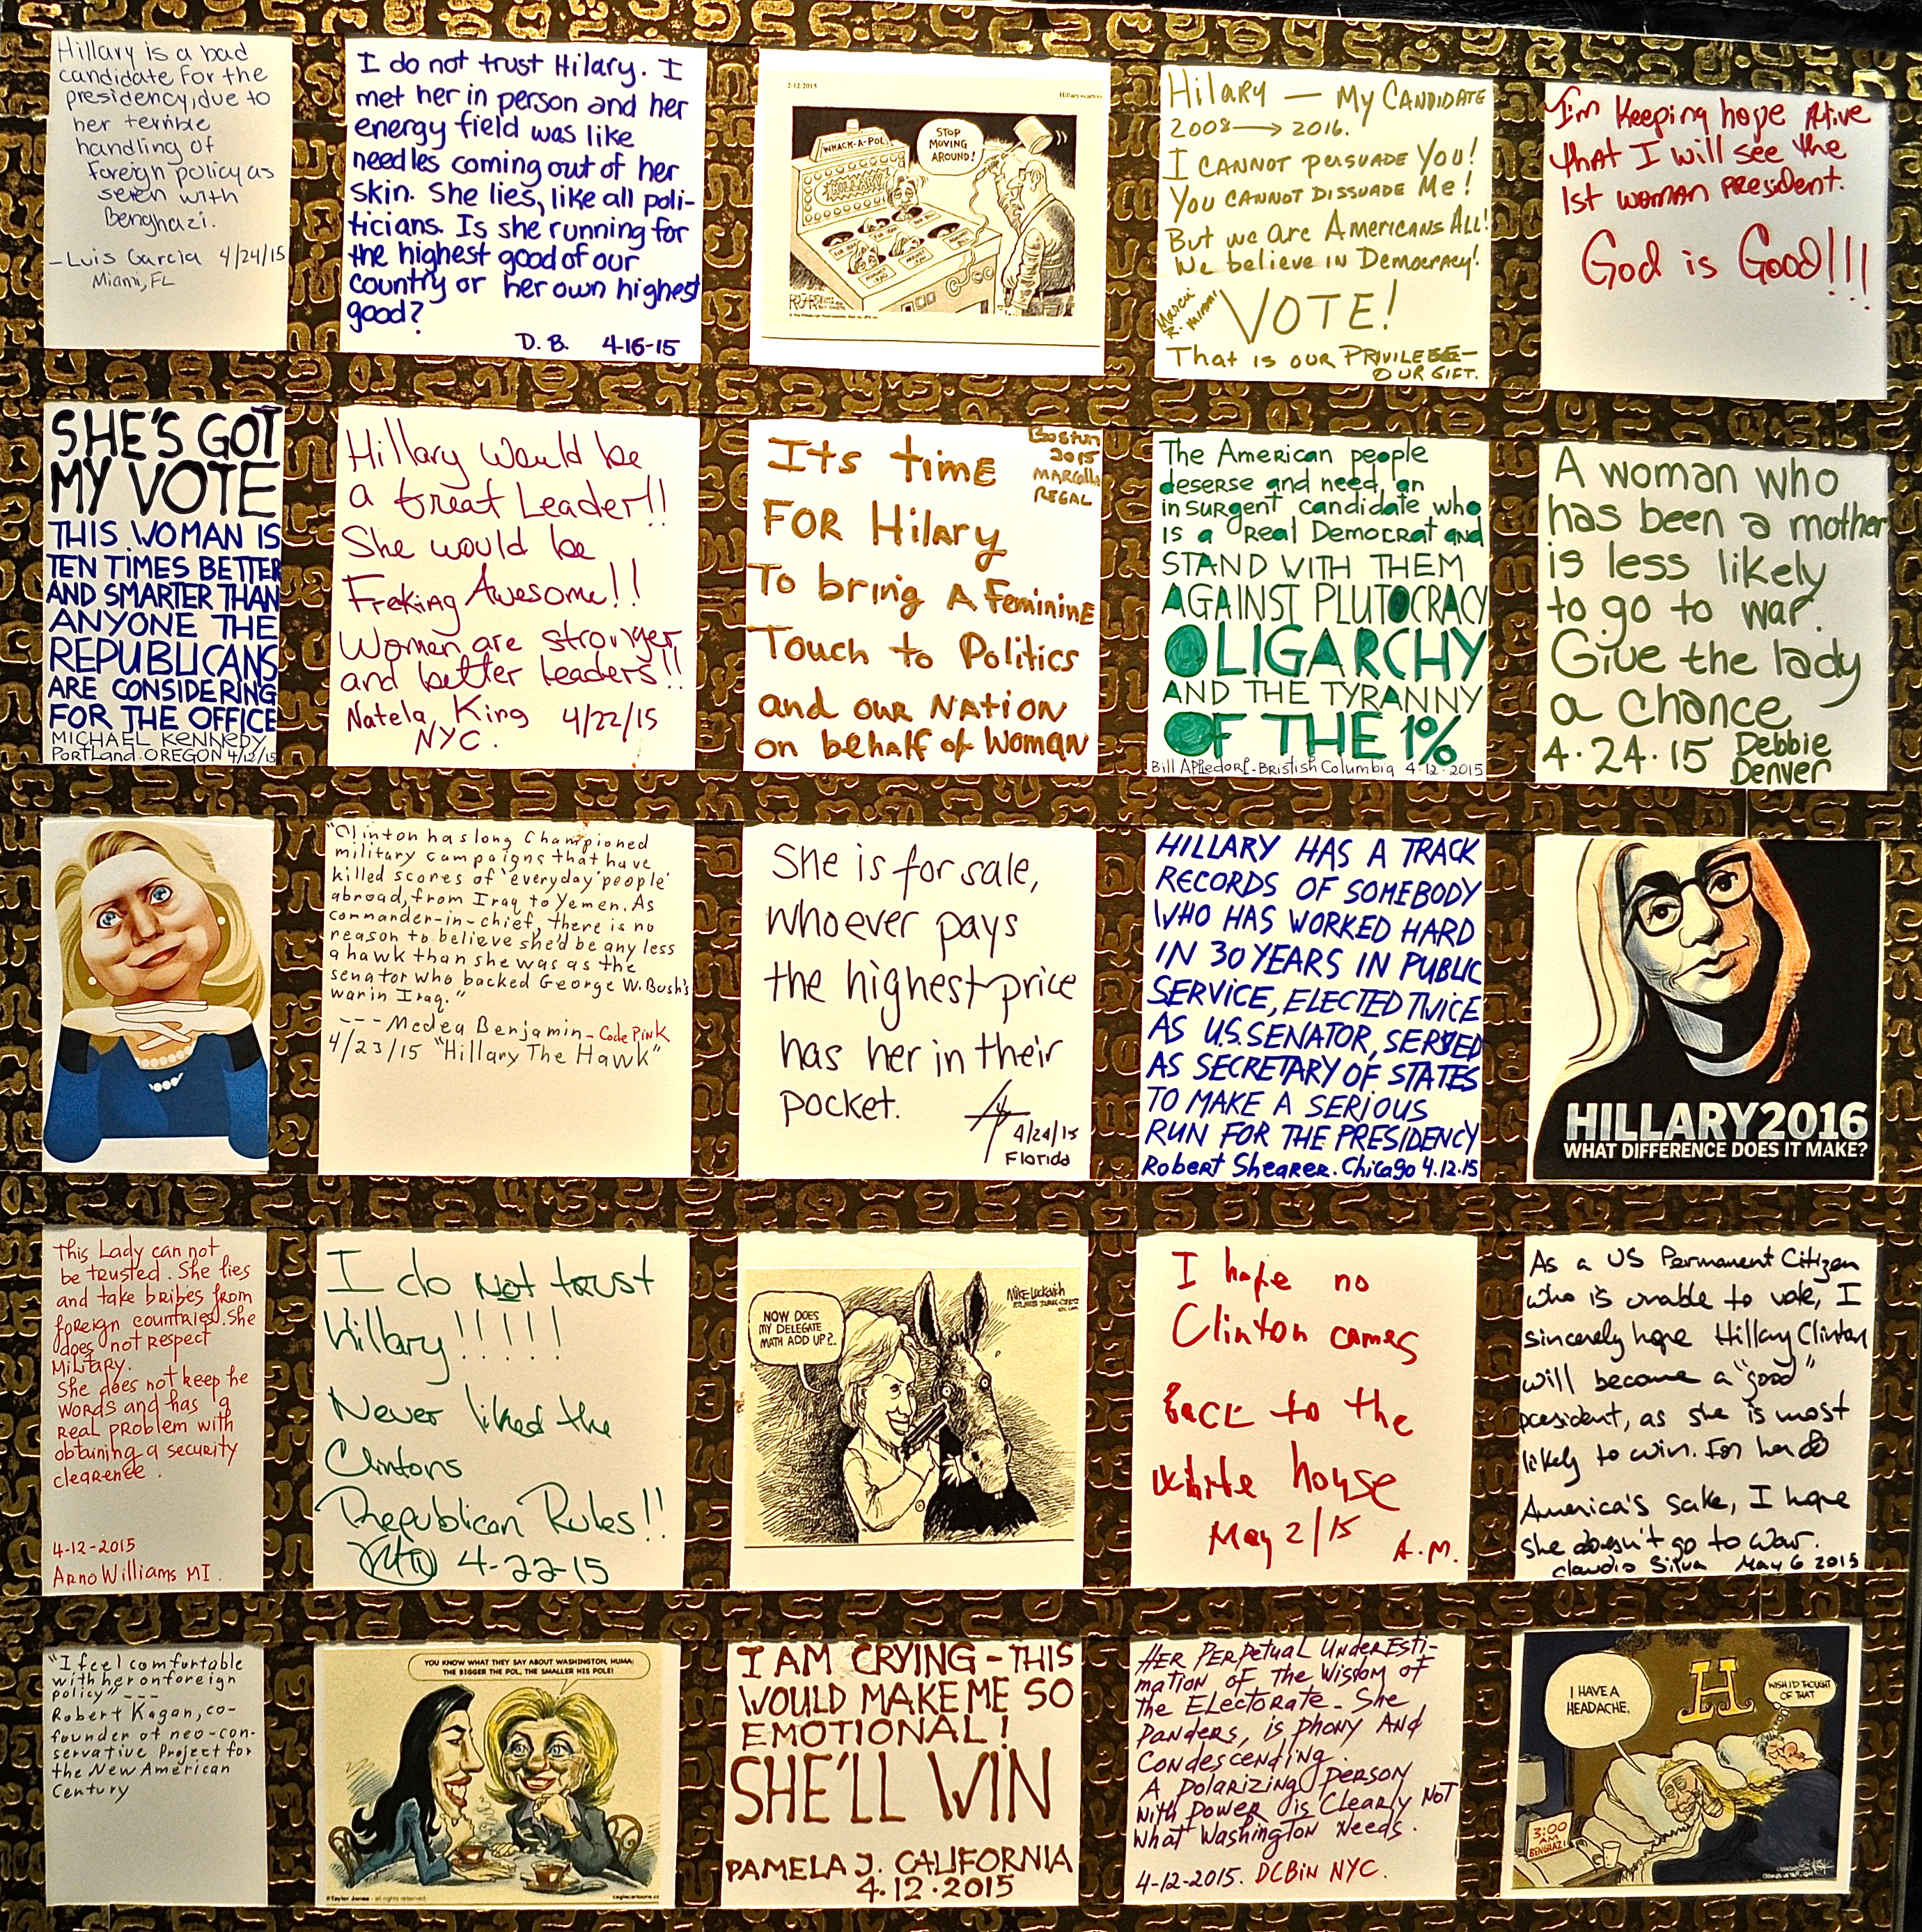 Hillary is a bad
candidate for the
presidency, due to
her terrible
handling of
foreign policy as
seen with
Benghazi.
-Luis Garcia 4/24/15
Miami, FL
I do not trust Hilary. I
met her in person and her
energy field was like
needles coming out of her
skin. She lies, like all poli-
ticians. Is she running for
the highest good of our
country or her own highest
good?
D.B. 4-16-15
2/12/2015
WHACK-A-POL
HILLARY
STOP
MOVING
AROUND!
Hilary — My CANDIDATE
2008 → 2016.
I CANNOT PERSUADE YOU!
YOU CANNOT DISSUADE Me!
But we are AMERICANS ALL!
We believe in Democracy!
VOTE!
That is our PRIVILEGE-
OUR GIFT.
I'm keeping hope Alive
that I will see the
1st woman president.
God is Good!!!
SHE'S GOT
MY VOTE
THIS WOMAN IS
TEN TIMES BETTER
AND SMARTER THAN
ANYONE THE
REPUBLICANS
ARE CONSIDERING
FOR THE OFFICE
MICHAEL KENNEDY
PORTLAND.OREGON 4/12/15
Hillary would be
a Great Leader!!
She would be
Freking Awesome!!
Women are stronger
and better leaders!!
Natela King 4/22/15
NYC.
Boston
2015
MARCella
REGAL
Its time
FOR Hilary
To bring A Feminine
Touch to Politics
and our NATION
on behalf of Woman
The American people
deserse and need an
insurgent candidate who
is a Real Democrat and
STAND WITH THEM
AGAINST PLUTOCRACY
OLIGARCHY
AND THE TYRANNY
OF THE 1%
Bill APPledorf-Bristish Columbia 4.12.2015
A woman who
has been a mother
is less likely
to go to war.
Give the lady
a chance
4.24.15 Debbie
Denver
"Clinton has long Championed
military campaigns that have
killed scores of 'everyday' people'
abroad, from Iraq to Yemen. As
commander-in-chief, there is no
reason to believe she'd be any less
a hawk than she was as the
senator who backed George W. Bush's
war in Iraq."
--- Medea Benjamin - Code Pink
4/23/15 "Hillary The Hawk"
She is for sale,
whoever pays
the highest price
has her in their
pocket.
4/24/15
Florida
HILLARY HAS A TRACK
RECORDS OF SOMEBODY
WHO HAS WORKED HARD
IN 30 YEARS IN PUBLIC
SERVICE, ELECTED TWICE
AS U.S. SENATOR, SERVED
AS SECRETARY OF STATES
TO MAKE A SERIOUS
RUN FOR THE PRESIDENCY
Robert Shearer. Chicago 4.12.15
HILLARY2016
WHAT DIFFERENCE DOES IT MAKE?
This Lady can not
be trusted. She lies
and take bribes from
foreign countries. She
does not respect
Military.
She does not keep he
words and has a
real problem with
obtaining a security
clearence.
4-12-2015
Arno Williams MI.
I do Not trust
Hillary!!!!!
Never liked the
Clintons
Republican Rules!!
4-22-15
NOW DOES
MY DELEGATE
MATH ADD UP?..
MIKE LUCKOVICH
I hope no
Clinton comes
back to the
white house
May 2/15 A.M.
As a US Permanent Citizen
who is unable to vote, I
sincerely hope Hillary Clinton
will become a "good"
president, as she is most
likely to win. For her &
America's sake, I hope
she doesn't go to war.
Claudio Silva May 6 2015
"I feel comfortable
with her on foreign
policy" ---
Robert Kagan, co-
founder of neo-con-
servative Project for
the New American
Century
YOU KNOW WHAT THEY SAY ABOUT WASHINGTON, HUMA:
THE BIGGER THE POL, THE SMALLER HIS POLE!
©Taylor Jones - all rights reserved.
caglecartoons.com
I AM CRYING - THIS
WOULD MAKE ME SO
EMOTIONAL!
SHE'LL WIN
PAMELA J. CALIFORNIA
4.12.2015
Her Perpetual Underesti-
mation of the Wisdom of
the Electorate. She
Panders, is phony AND
Condescending.
A polarizing person
with power is Clearly NOT
what Washington Needs.
4-12-2015. DCBiN NYC.
H
I HAVE A
HEADACHE.
WISH I'D THOUGHT
OF THAT
3:00
AM
BENGHAZI